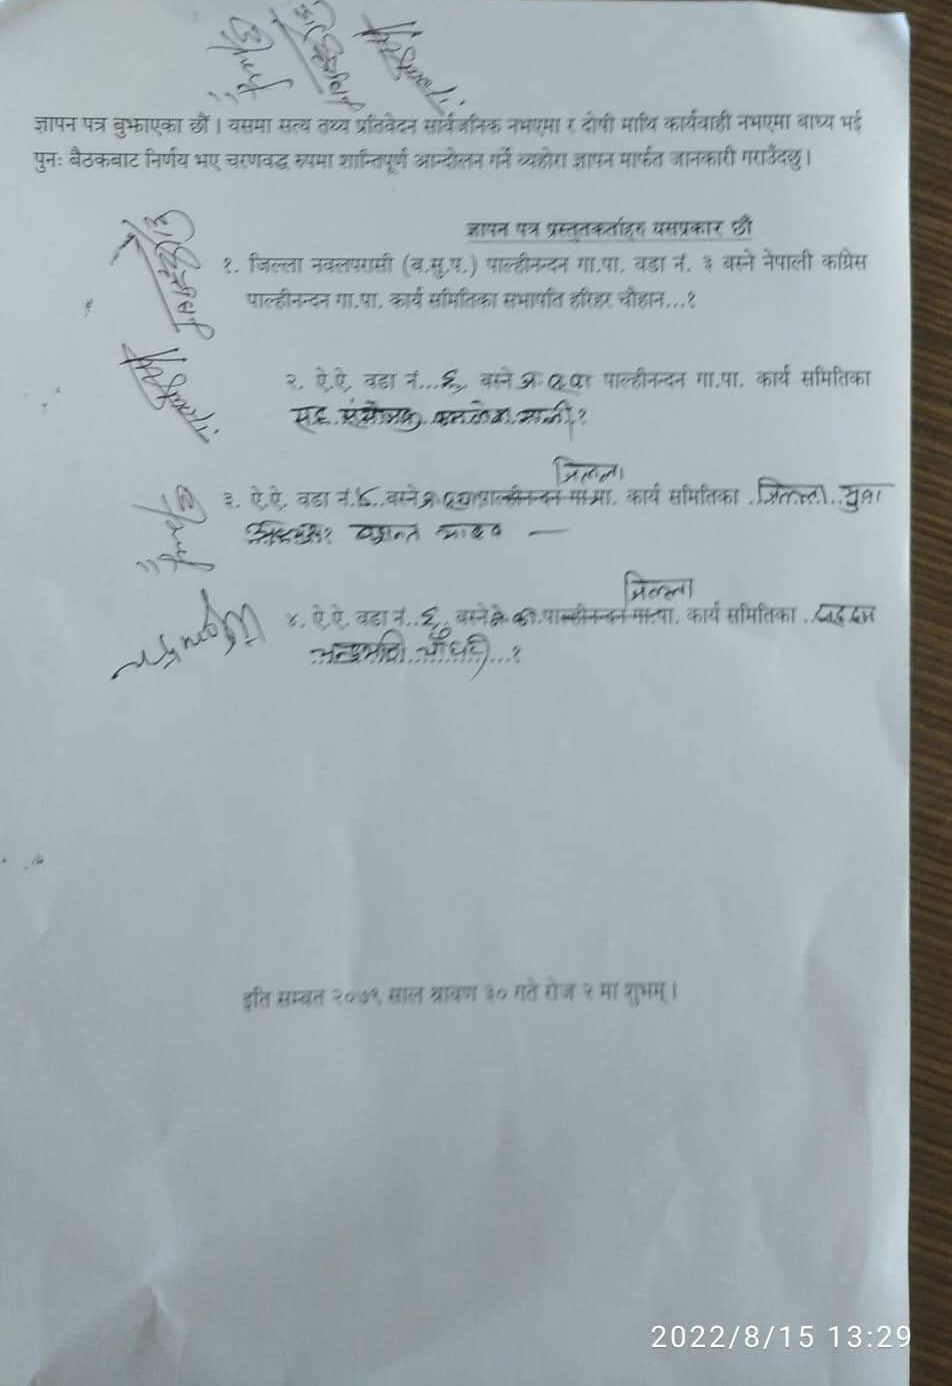 ज्ञापन पत्र बुझाएका छौं । यसमा सत्य तथ्य प्रतिवेदन सार्वजनिक नभएमा र दोषी माथि कार्यवाही नभएमा बाध्य भई
पुनः बैठकबाट निर्णय भए चरणवद्ध रुपमा शान्तिपूर्ण आन्दोलन गर्ने व्यहोरा ज्ञापन मार्फत जानकारी गराउँदछु ।
ज्ञापन पत्र प्रस्तुतकर्ताहरु यसप्रकार छौं
१. जिल्ला नवलपरासी (ब.सु.प.) पाल्हीनन्दन गा.पा. वडा नं. ३ बस्ने नेपाली कांग्रेस
पाल्हीनन्दन गा.पा. कार्य समितिका सभापति हरिहर चौहान...१
२. ऐ.ऐ. वडा नं... ६ बस्ने पाल्हीनन्दन गा.पा. कार्य समितिका
सह संयोजक
जिल्ला
३. ऐ.ऐ. वडा नं. बस्ने पाल्हीनन्दन गा.पा. कार्य समितिका जिल्ला युवा
यादव
जिल्ला
४. ऐ.ऐ. वडा नं.. ६ बस्ने पाल्हीनन्दन गा.पा. कार्य समितिका
चौधरी...१
इति सम्वत २०७९ साल श्रावण ३० गते रोज २ मा शुभम् ।
2022/8/15 13:29